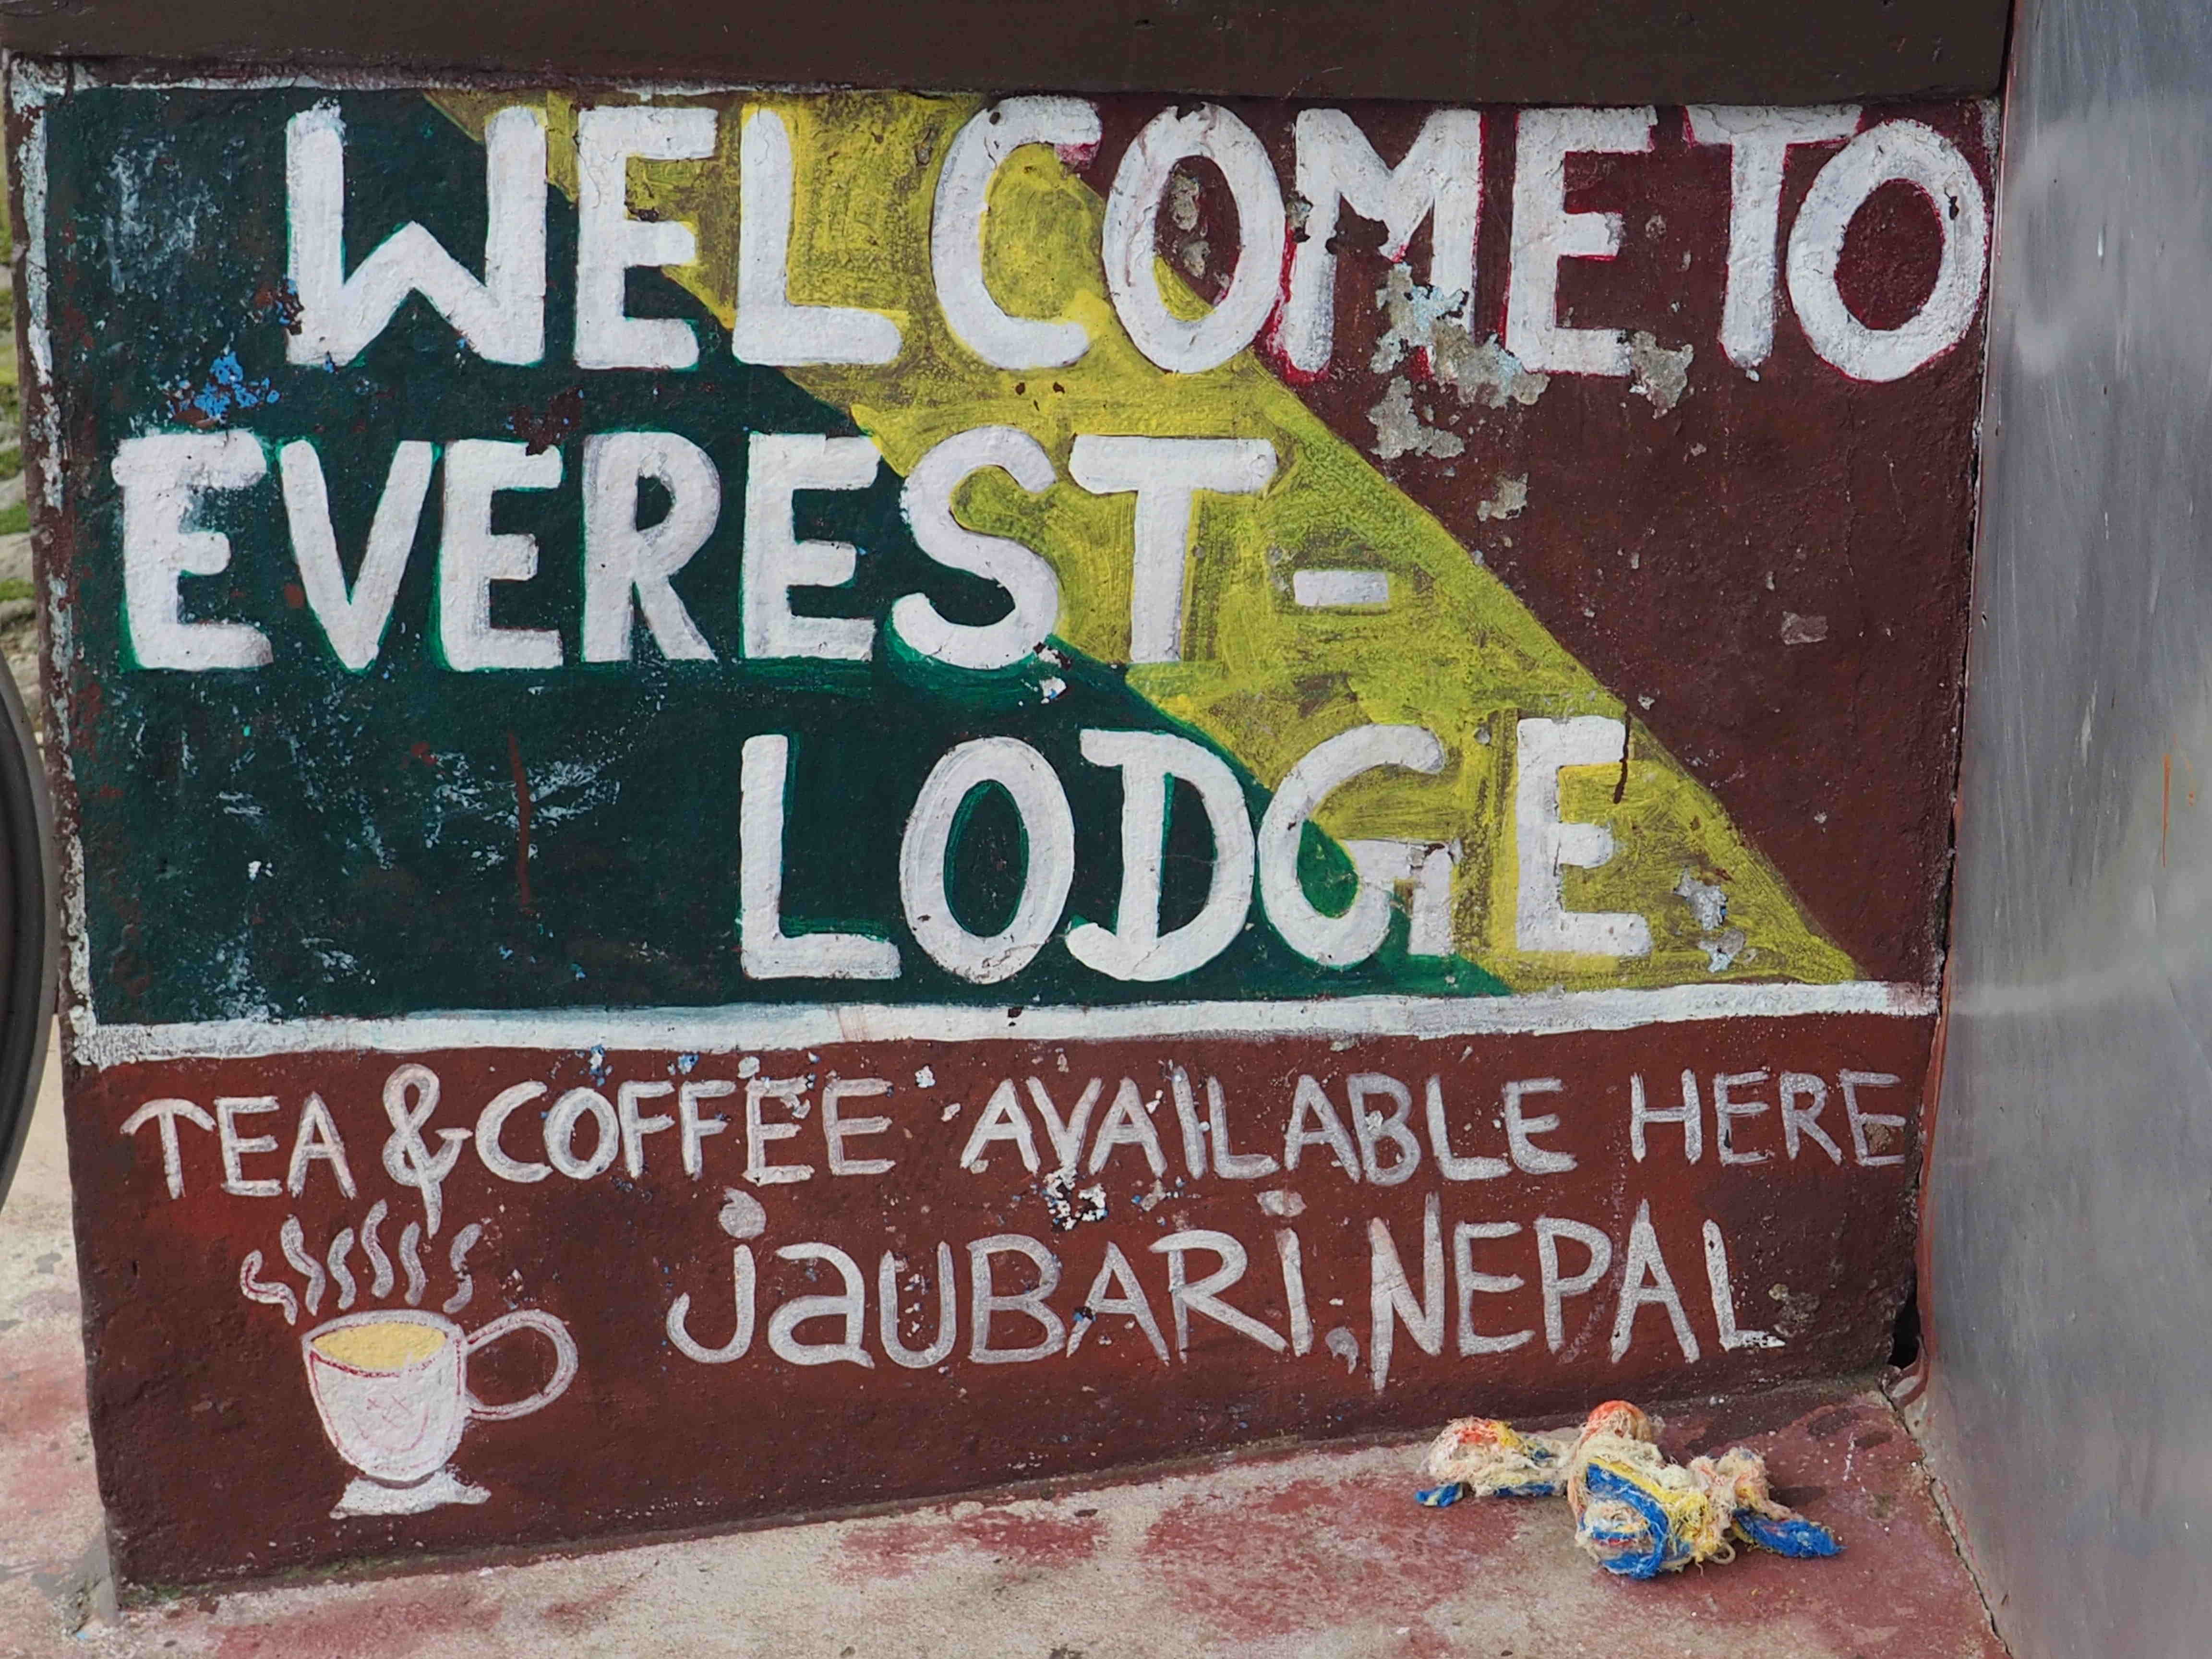 WELCOME TO
EVEREST-
LODGE
TEA & COFFEE AVAILABLE HERE
jaUBARi, NEPAL